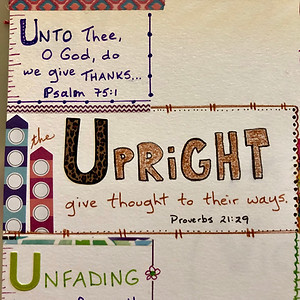 UNTO Thee,
O God, do
we give THANKS...
Psalm 75:1
the UPRiGHT
give thought to their ways.
Proverbs 21:29
UNFADING